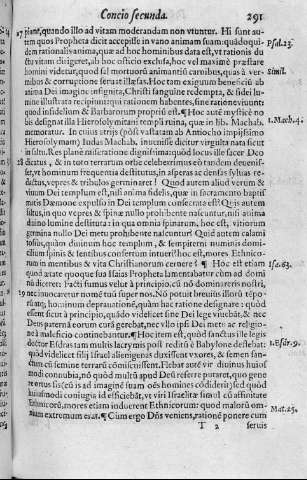 Concio secunda. 291
27 piant, quando illo ad vitam moderandam non vtuntur. Hi sunt au-
tem quos Propheta dicit accepisse in vano animam suam: quod qui-
dem rationalis anima, quæ ad hoc hominibus data est, vt rationis du-
ctu vitam dirigeret, ab hoc officio exclusa, hoc vel maximè præstare
homini videtur, quod sal mortuorũ animantiũ carnibus, quas à ver-
mibus & corruptione seruat illæsas. Hoc tam exiguum beneficiũ ab
anima Dei imagine insignita, Christi sanguine redempta, & fidei lu-
mine illustrata recipiunt qui rationem habentes, sine ratione viuunt:
quod infidelium & Barbarorum propriũ est. ¶ Hoc autẽ mysticè no-
bis designat illa Hierosolymitani templi ruina, quæ in lib. Machab.
memoratur. In cuius atrijs (post vastatam ab Antiocho impijssimo
Hierosolymam) Iudas Machab. inuenisse dicitur virgulta nata sicut in
saltu. Res planè ratione indignissima: quòd locus ille sacer Deo
28 dicatus, & in toto terrarum orbe celeberrimus eò tandem deuenis-
set, vt hominum frequentia destitutus, in asperas ac densas syluas re-
dactus, vepres & tribulos germinaret! Quod autem aliud verum &
viuum Dei templum est, nisi anima fidelis, quæ in sacramento baptis-
matis Dæmone expulso in Dei templum consecrata est? Quis autem
saltus, in quo vepres & spinæ nullo prohibente nascuntur, nisi anima
diuino lumine destituta: in qua omnia spinarum, hoc est, vitiorum
germina nullo Dei metu prohibente nascuntur? Quid autem calami-
tosius, quàm diuinum hoc templum, & sempiterni numinis domi-
cilium spinis & sentibus consertum intueri? hoc est, mores Ethnico-
rum in mentibus & vita Christianorum cernere? ¶ Hoc est etiam
quod ætate quoque sua Isaias Propheta lamentabatur cùm ad domi-
nũ diceret: Facti sumus velut à principio, cũ nõ dominareris nostri,
29 nec inuocaretur nomẽ tuũ super nos. Nõ potuit breuiùs illorũ tẽpo-
rũ hominum deprauationẽ, quàm hac ratione designare: quòd
essent sicut à principio, quòdo videlicet sine Dei lege viuebãt, & nec
Deus paternã eorum curã gerebat, nec vllo ipsi Dei metu ac religio-
ne à maleficio continebantur. ¶ Hoc item est, quòd sanctus ille legis
doctor Esdras tam multis lacrymis post reditũ è Babylone deflebat:
quòd videlicet filij Israel alienigenas duxissent vxores, & semen san-
ctum cũ semine terræ cõmiscuissent. Flebat autẽ vir diuinus huius-
modi connubia, nõ quòd multũ apud Dẽũ referret putaret, quo gene-
re ortus sis (cũ is ad imaginẽ suam oẽs homines cõdiderit) sed quòd
huiusmodi coniugia id efficiebãt, vt viri Israelitæ simul cũ affinitate
Ethnicorũ, mores etiam induerent Ethnicorum: quod malorũ om-
nium extremum erat. ¶ Cùm ergo Dñs veniens, rationẽ ponere cum
T 2 seruis
Psal.23.
Simil.
1.Mach.4.
Isa.63.
1.Esdr.9.
Mat.25.